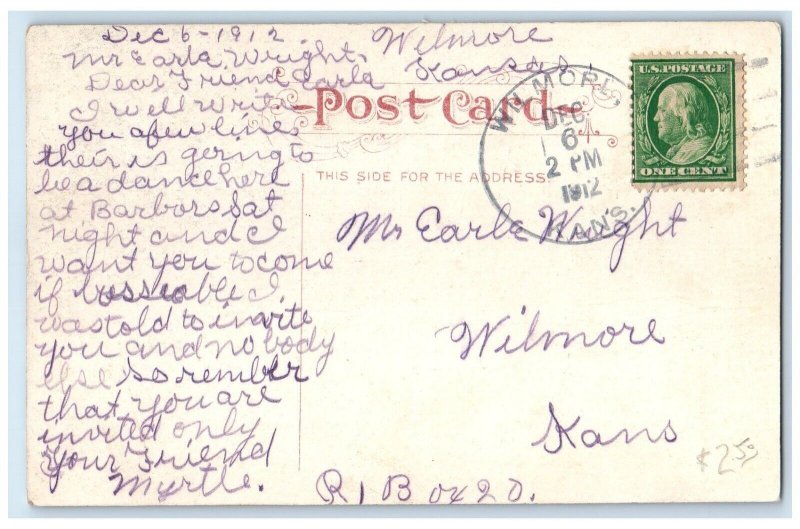 Dec 6-1912. Wilmore
Mr Earla Wright, Kansas.
Dear Friend Earla
I well write
you a few lines
their is going to
be a dance here
at Barbors Sat
night and I
want you to come
if bossable I
was told to invite
you and no body
else so rember
that you are
invited only
Your Friend
Myrtle.
Post Card
THIS SIDE FOR THE ADDRESS.
WILMORE,
DEC
6
2 PM
1912
KANS.
U.S. POSTAGE
ONE CENT
Mr Earla Wright
Wilmore
Kans
R, 1 Box 20.
$2.50